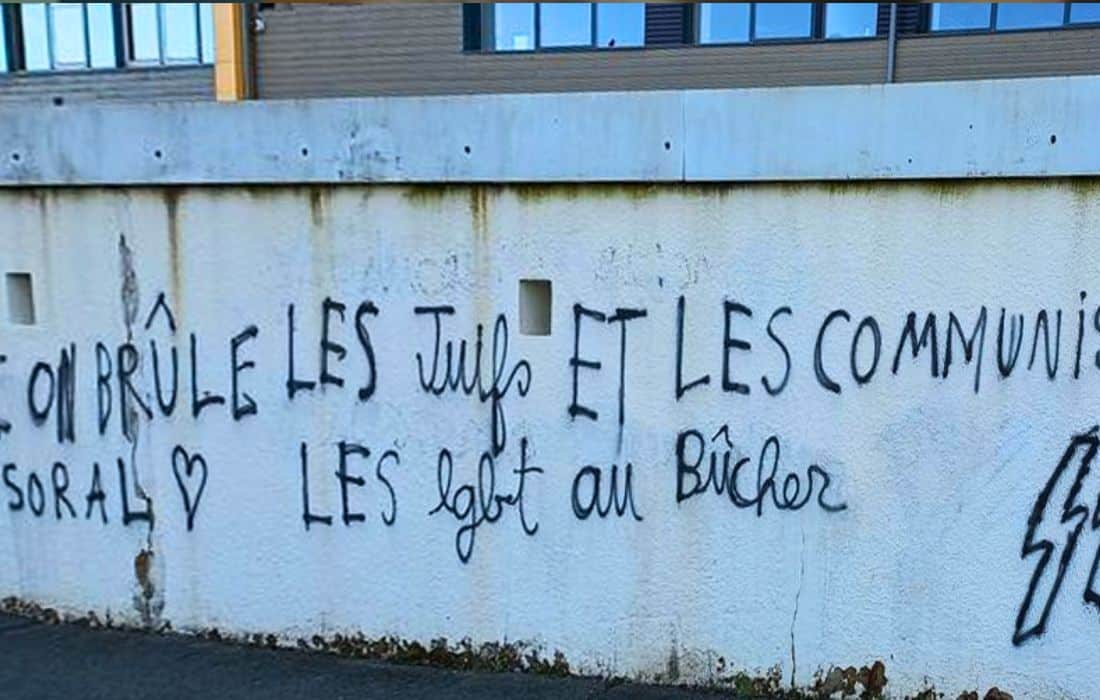 ON BRÛLE LES Juifs ET LES COMMUNIS
SORAL ♡ LES lgbt au Bûcher